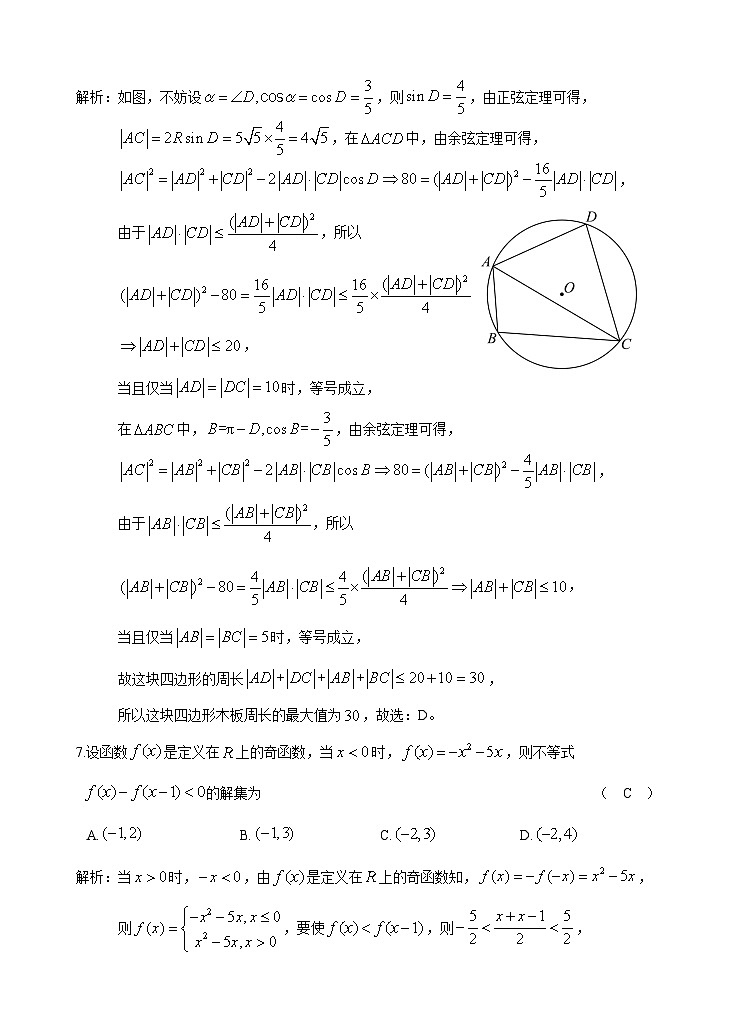 解析：如图，不妨设α=∠D,cosα=cos D=3/5，则sin D=4/5，由正弦定理可得，
|AC|=2R sin D=5√5×4/5=4√5，在ΔACD中，由余弦定理可得，
|AC|²=|AD|²+|CD|²−2|AD|·|CD|cos D⇒80=(|AD|+|CD|)²−16/5|AD|·|CD|，
由于|AD|·|CD|≤(|AD|+|CD|)²/4，所以
(|AD|+|CD|)²−80=16/5|AD|·|CD|≤16/5×(|AD|+|CD|)²/4
⇒|AD|+|CD|≤20，
D
A
O
B
C
当且仅当|AD|=|DC|=10时，等号成立，
在ΔABC中，B=π−D,cos B=−3/5，由余弦定理可得，
|AC|²=|AB|²+|CB|²−2|AB|·|CB|cos B⇒80=(|AB|+|CB|)²−4/5|AB|·|CB|，
由于|AB|·|CB|≤(|AB|+|CB|)²/4，所以
(|AB|+|CB|)²−80=4/5|AB|·|CB|≤4/5×(|AB|+|CB|)²/4⇒|AB|+|CB|≤10，
当且仅当|AB|=|BC|=5时，等号成立，
故这块四边形的周长|AD|+|DC|+|AB|+|BC|≤20+10=30，
所以这块四边形木板周长的最大值为30，故选：D。
7.设函数f(x)是定义在R上的奇函数，当x<0时，f(x)=−x²−5x，则不等式
f(x)−f(x−1)<0的解集为 （ C ）
A.(−1,2) B.(−1,3) C.(−2,3) D.(−2,4)
解析：当x>0时，−x<0，由f(x)是定义在R上的奇函数知，f(x)=−f(−x)=x²−5x，
则f(x)={−x²−5x,x≤0 x²−5x,x>0，要使f(x)<f(x−1)，则−5/2<(x+x−1)/2<5/2，